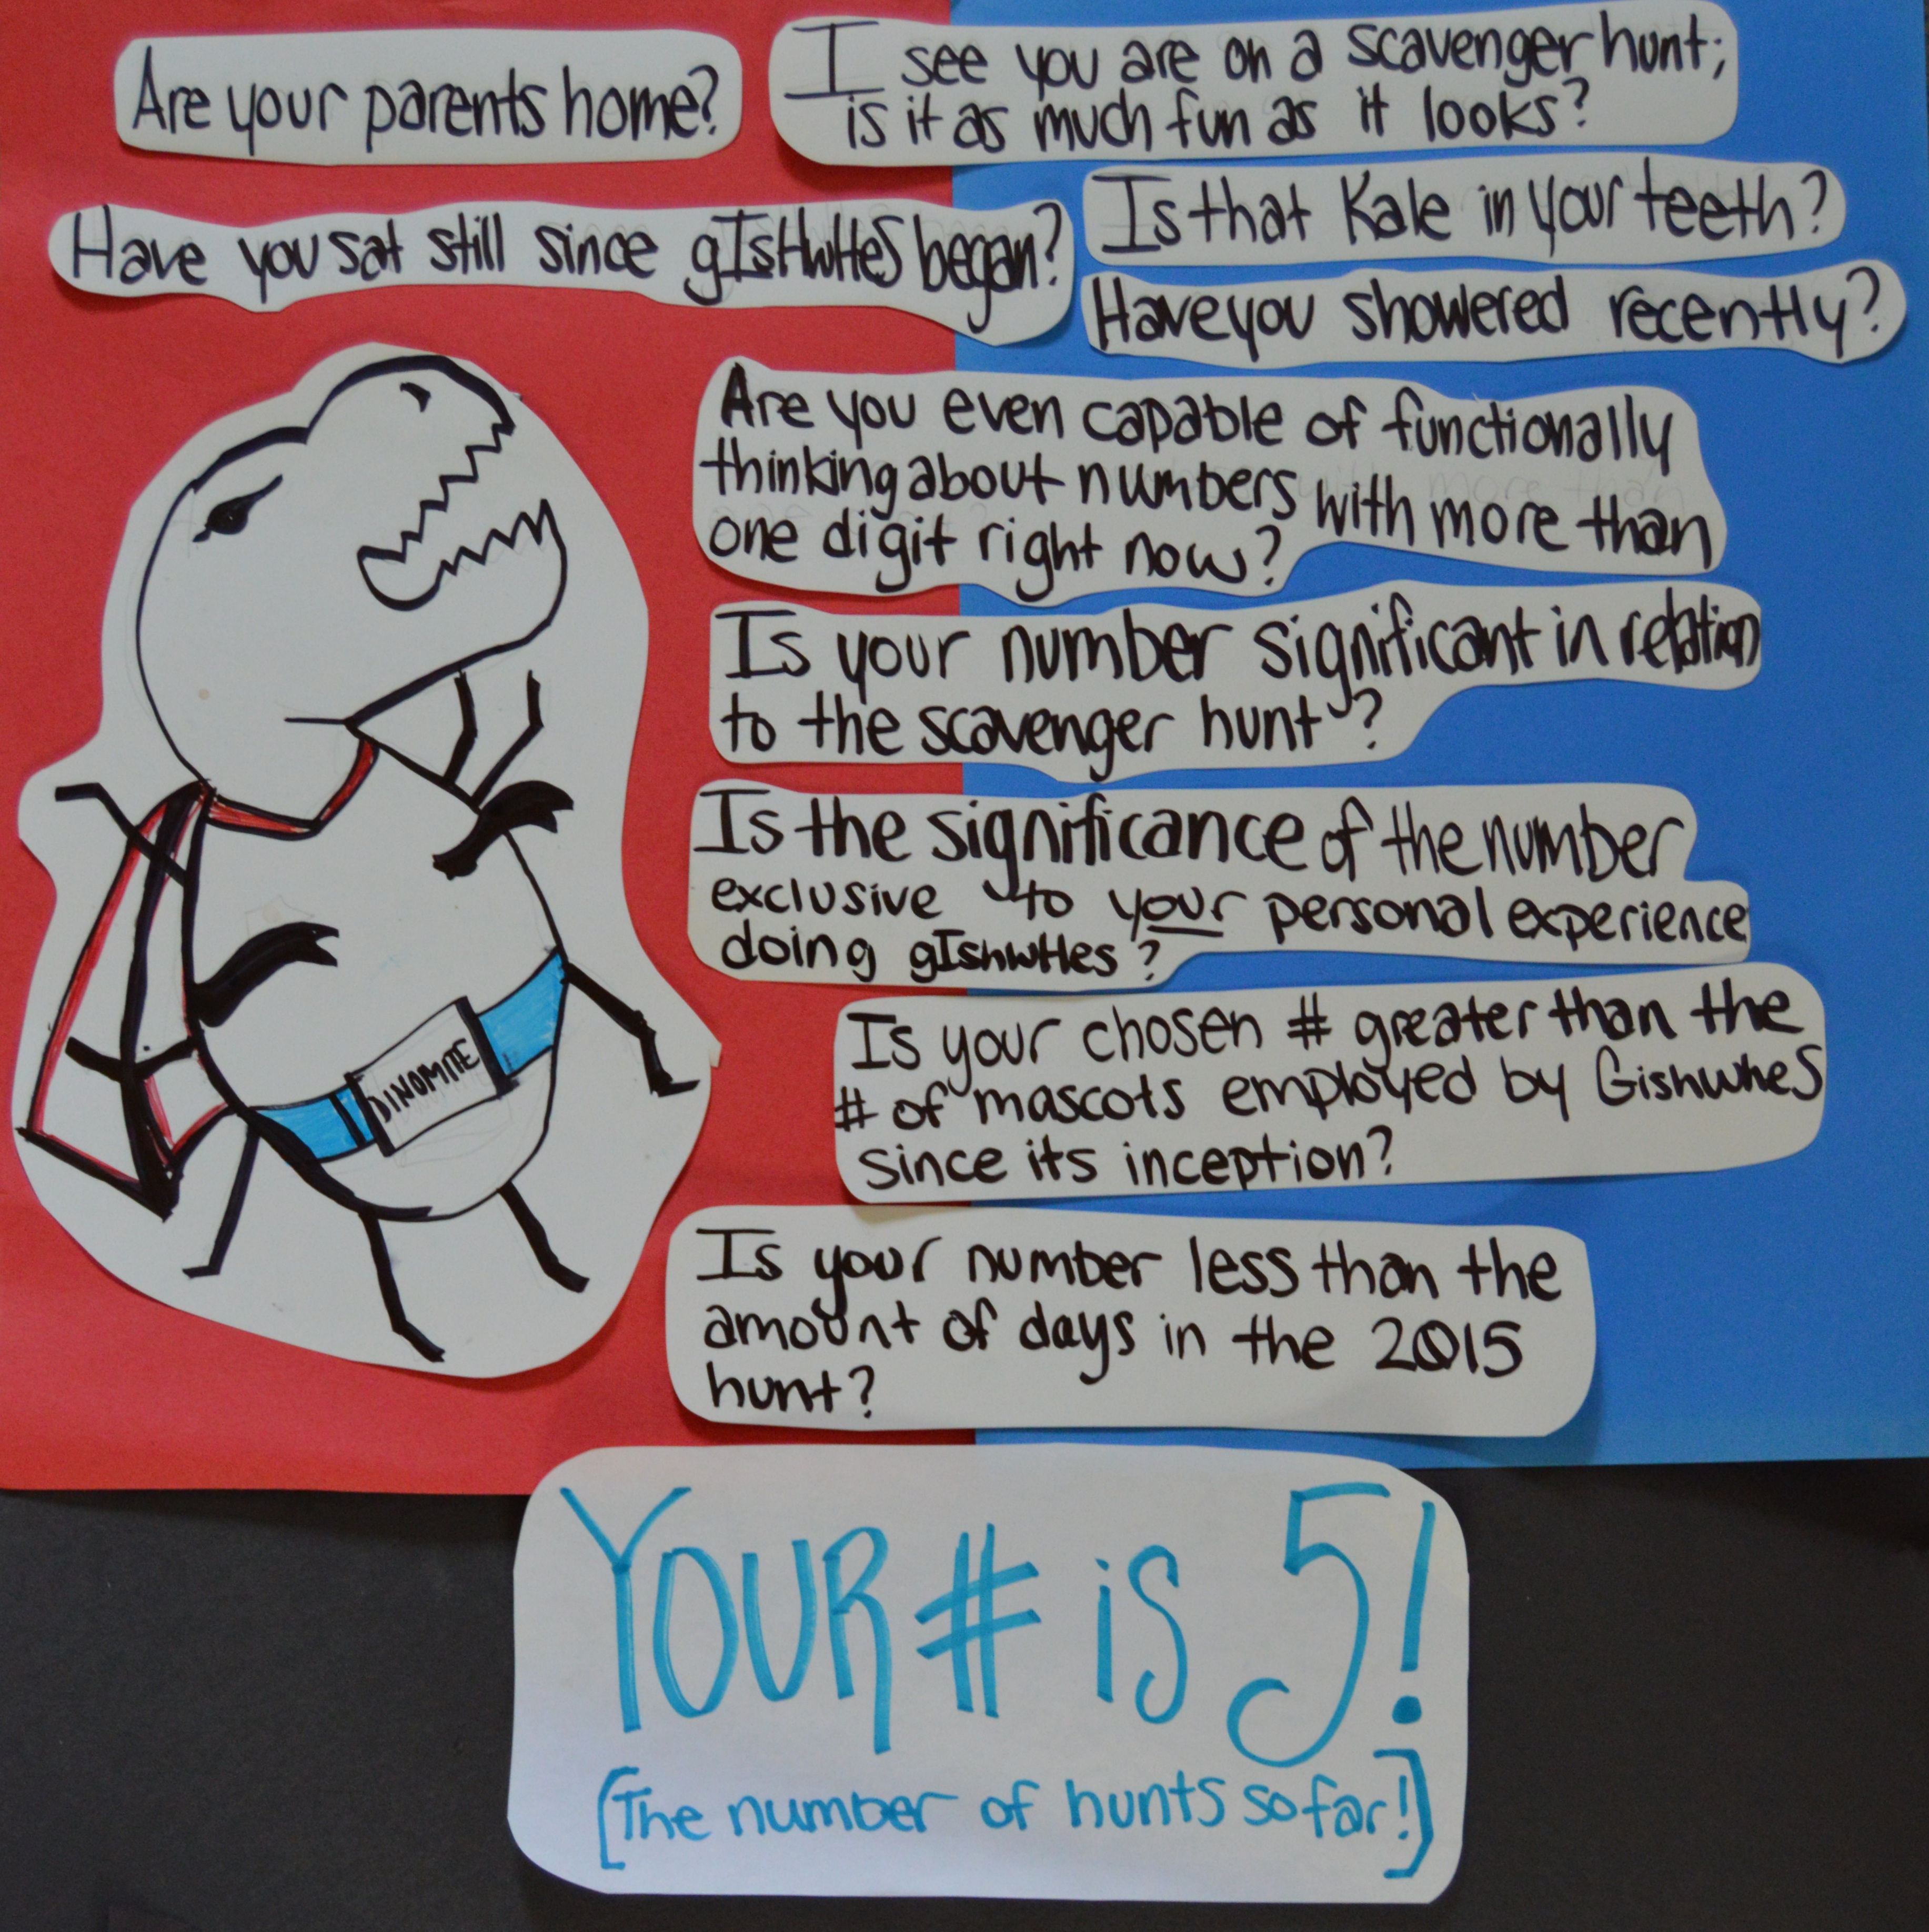 Are your parents home?
I see you are on a scavenger hunt;
is it as much fun as it looks?
Have you sat still since gIsHwHeS began?
Is that Kale in your teeth?
Have you showered recently?
Are you even capable of functionally
thinking about numbers with more than
one digit right now?
Is your number significant in relation
to the scavenger hunt?
Is the significance of the number
exclusive to your personal experience
doing gIshwHes?
Is your chosen # greater than the
# of mascots employed by GishwheS
since its inception?
DINOMITE
Is your number less than the
amount of days in the 2015
hunt?
YOUR # is 5!
[The number of hunts so far!]